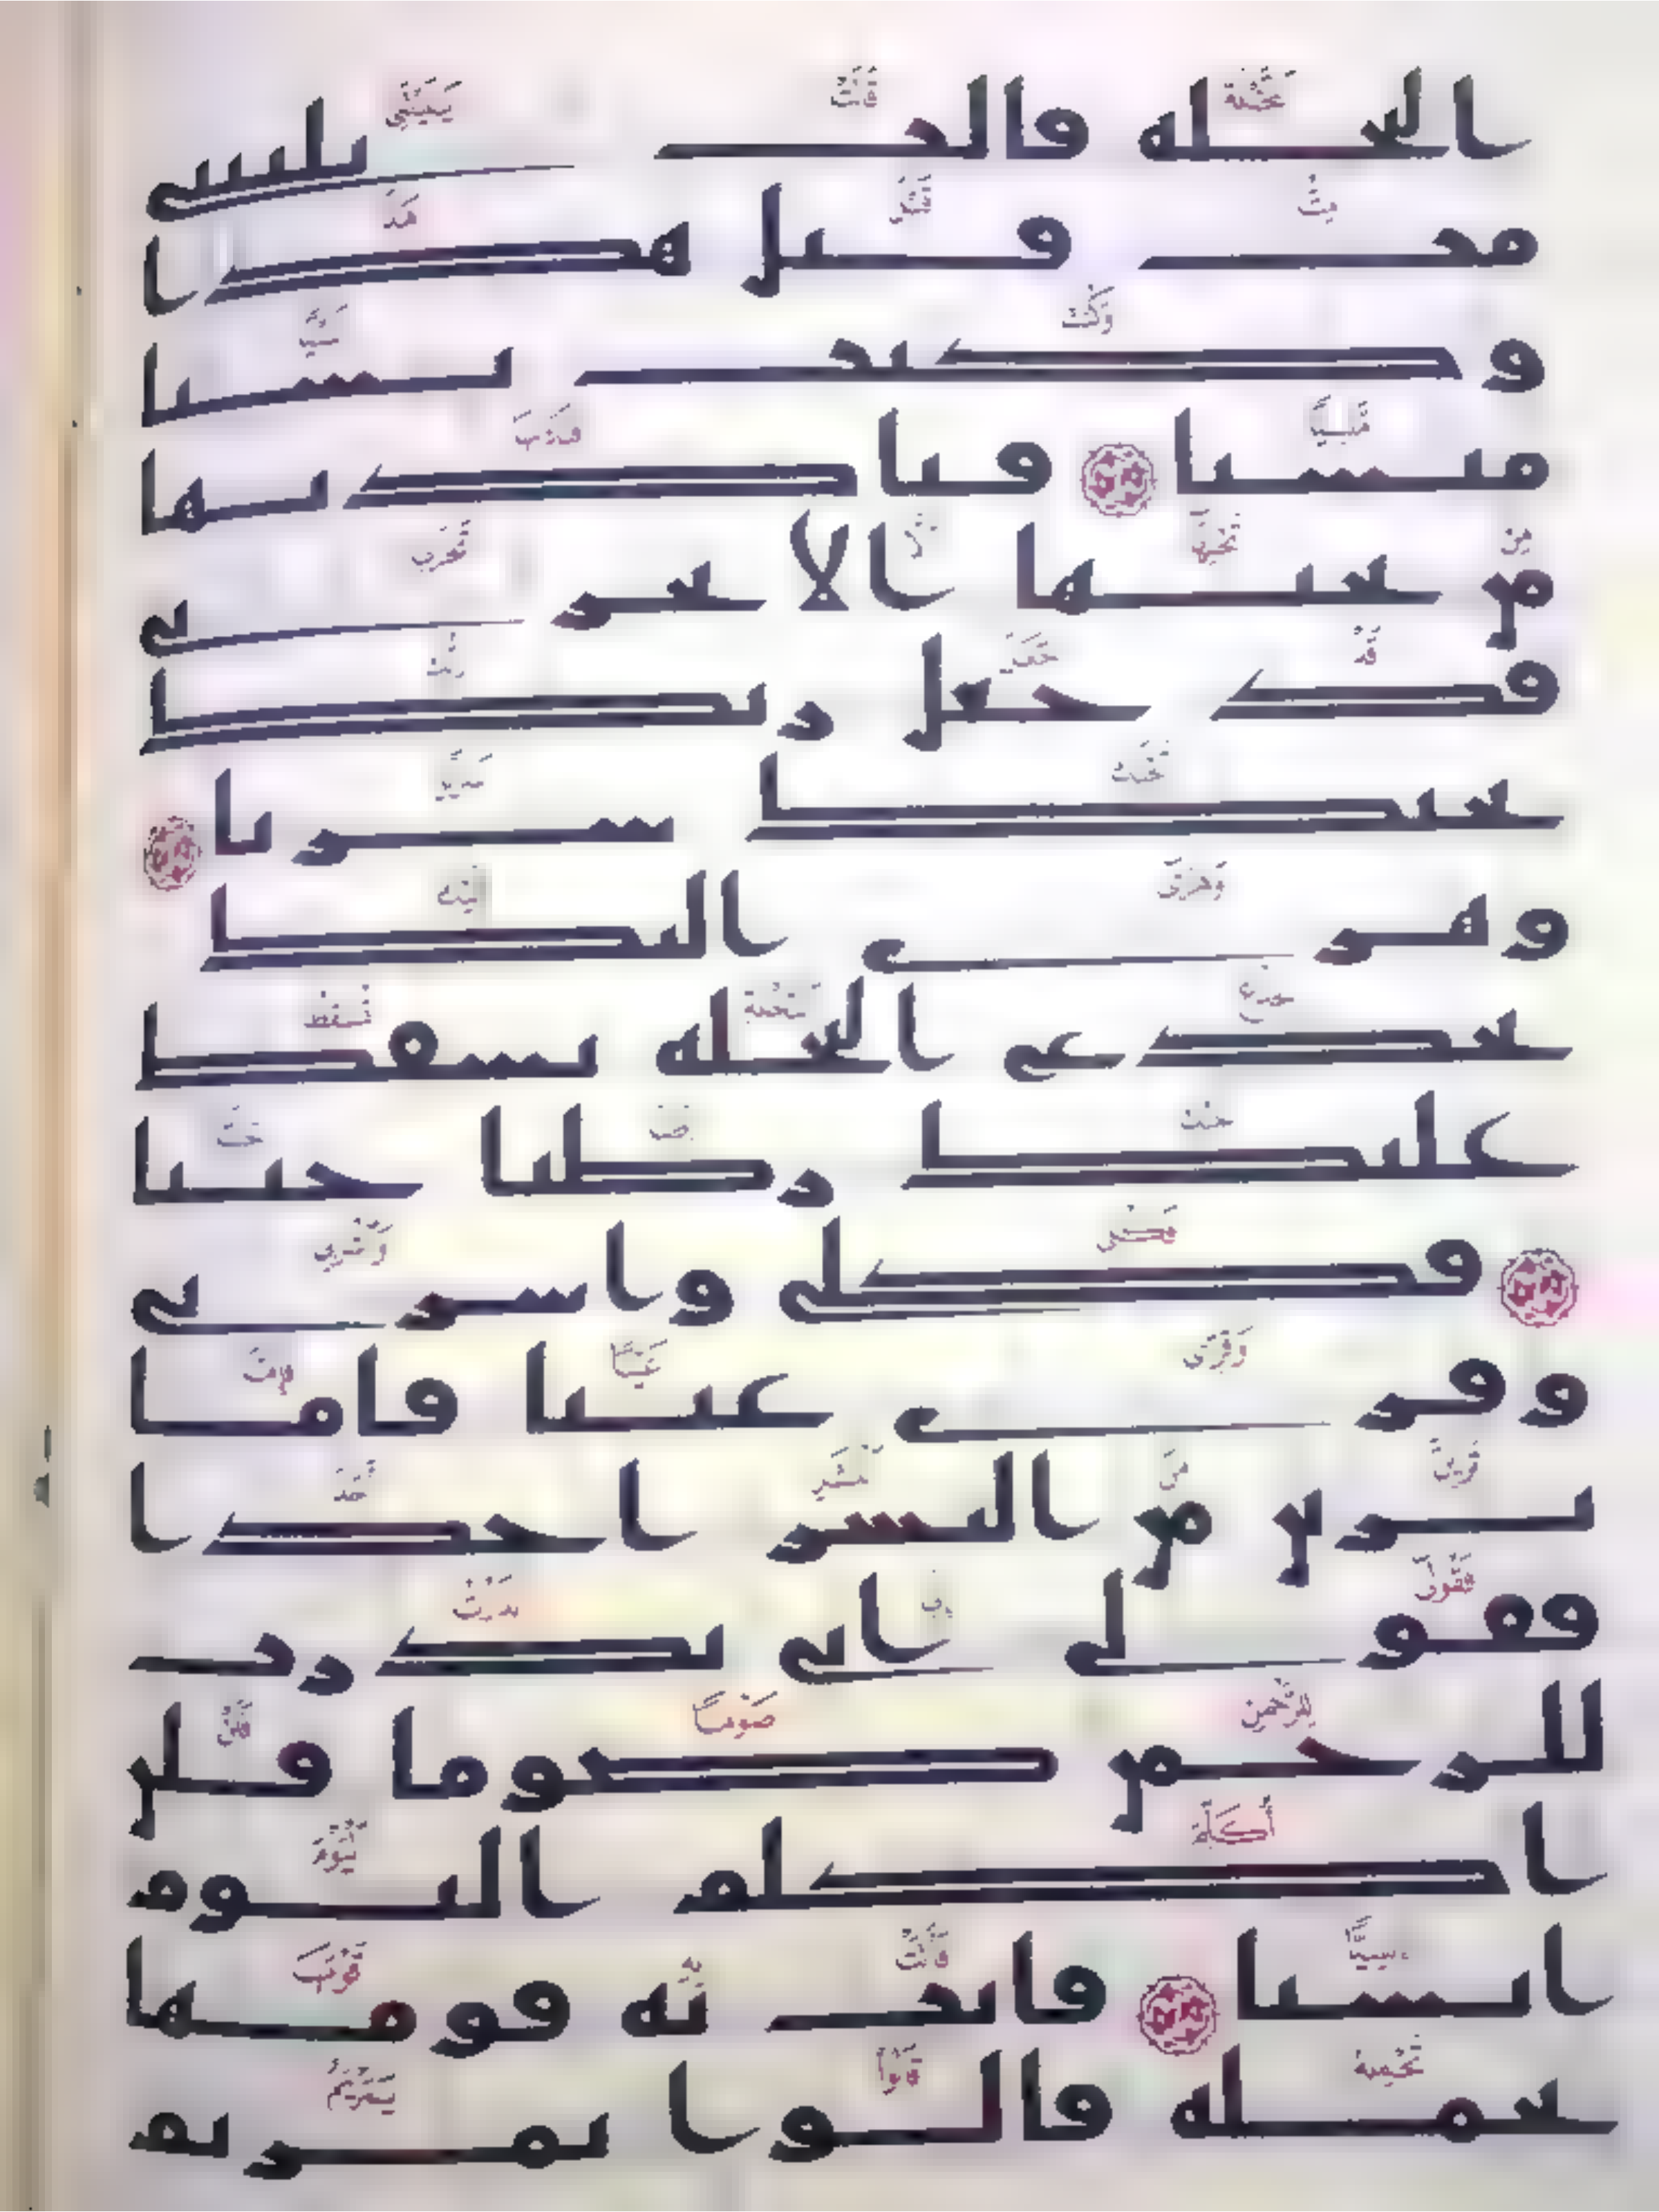 النخلة قالت يليتني
مت قبل هذا
وكنت نسيا
منسيا فناديها
من تحتها الا تحزني
قد جعل ربك
تحتك سريا
وهزي اليك
بجذع النخلة تسقط
عليك رطبا جنيا
فكلي واشربي
وقري عينا فاما
ترين من البشر احدا
فقولي اني نذرت
للرحمن صوما فلن
اكلم اليوم
انسيا فاتت به قومها
تحمله قالوا يمريم